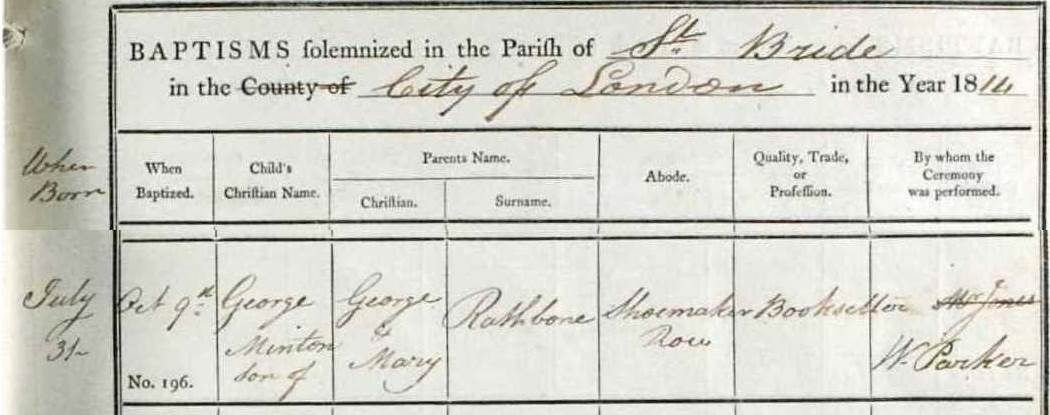 BAPTISMS solemnized in the Parish of St. Bride
in the County of City of London in the Year 1814
When Born
When Baptized.
Child's Christian Name.
Parents Name.
Christian.
Surname.
Abode.
Quality, Trade, or Profession.
By whom the Ceremony was performed.
July 31
Oct 9th
No. 196.
George
Minton
Son of
George
&
Mary
Rathbone
Shoemaker
Row
Bookseller
Mr Jones
W. Parker